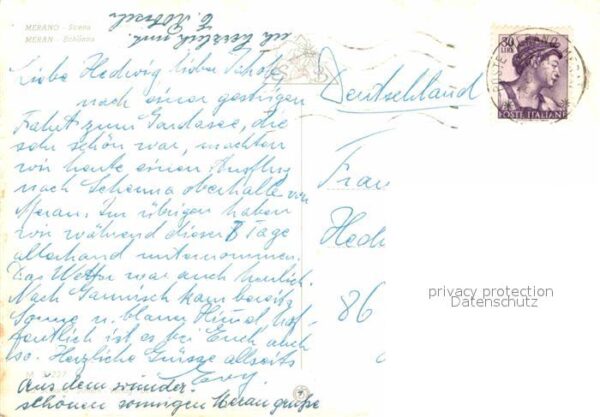 MERANO - Scena
MERAN - Schönna
auch herzlich mit
Liebe Hedwig lieber
nach einer gestrigen
Fahrt zum Gardasee, die
sehr schön war, machten
wir heute einen Ausflug
nach Schenna oberhalb von
Meran. Im übrigen haben
wir während dieser 8 Tage
allerhand unternommen.
Das Wetter war auch herrlich.
Nach Garmisch kam bereits
Sonne u. blauer Himmel hof-
fentlich ist es bei Euch auch
so. Herzliche Grüsse allseits
Aus dem
schönen sonnigen Meran grüße
30
LIRE
POSTE ITALIANE
Deutschland
Frau
Hedw
86
privacy protection
Datenschutz